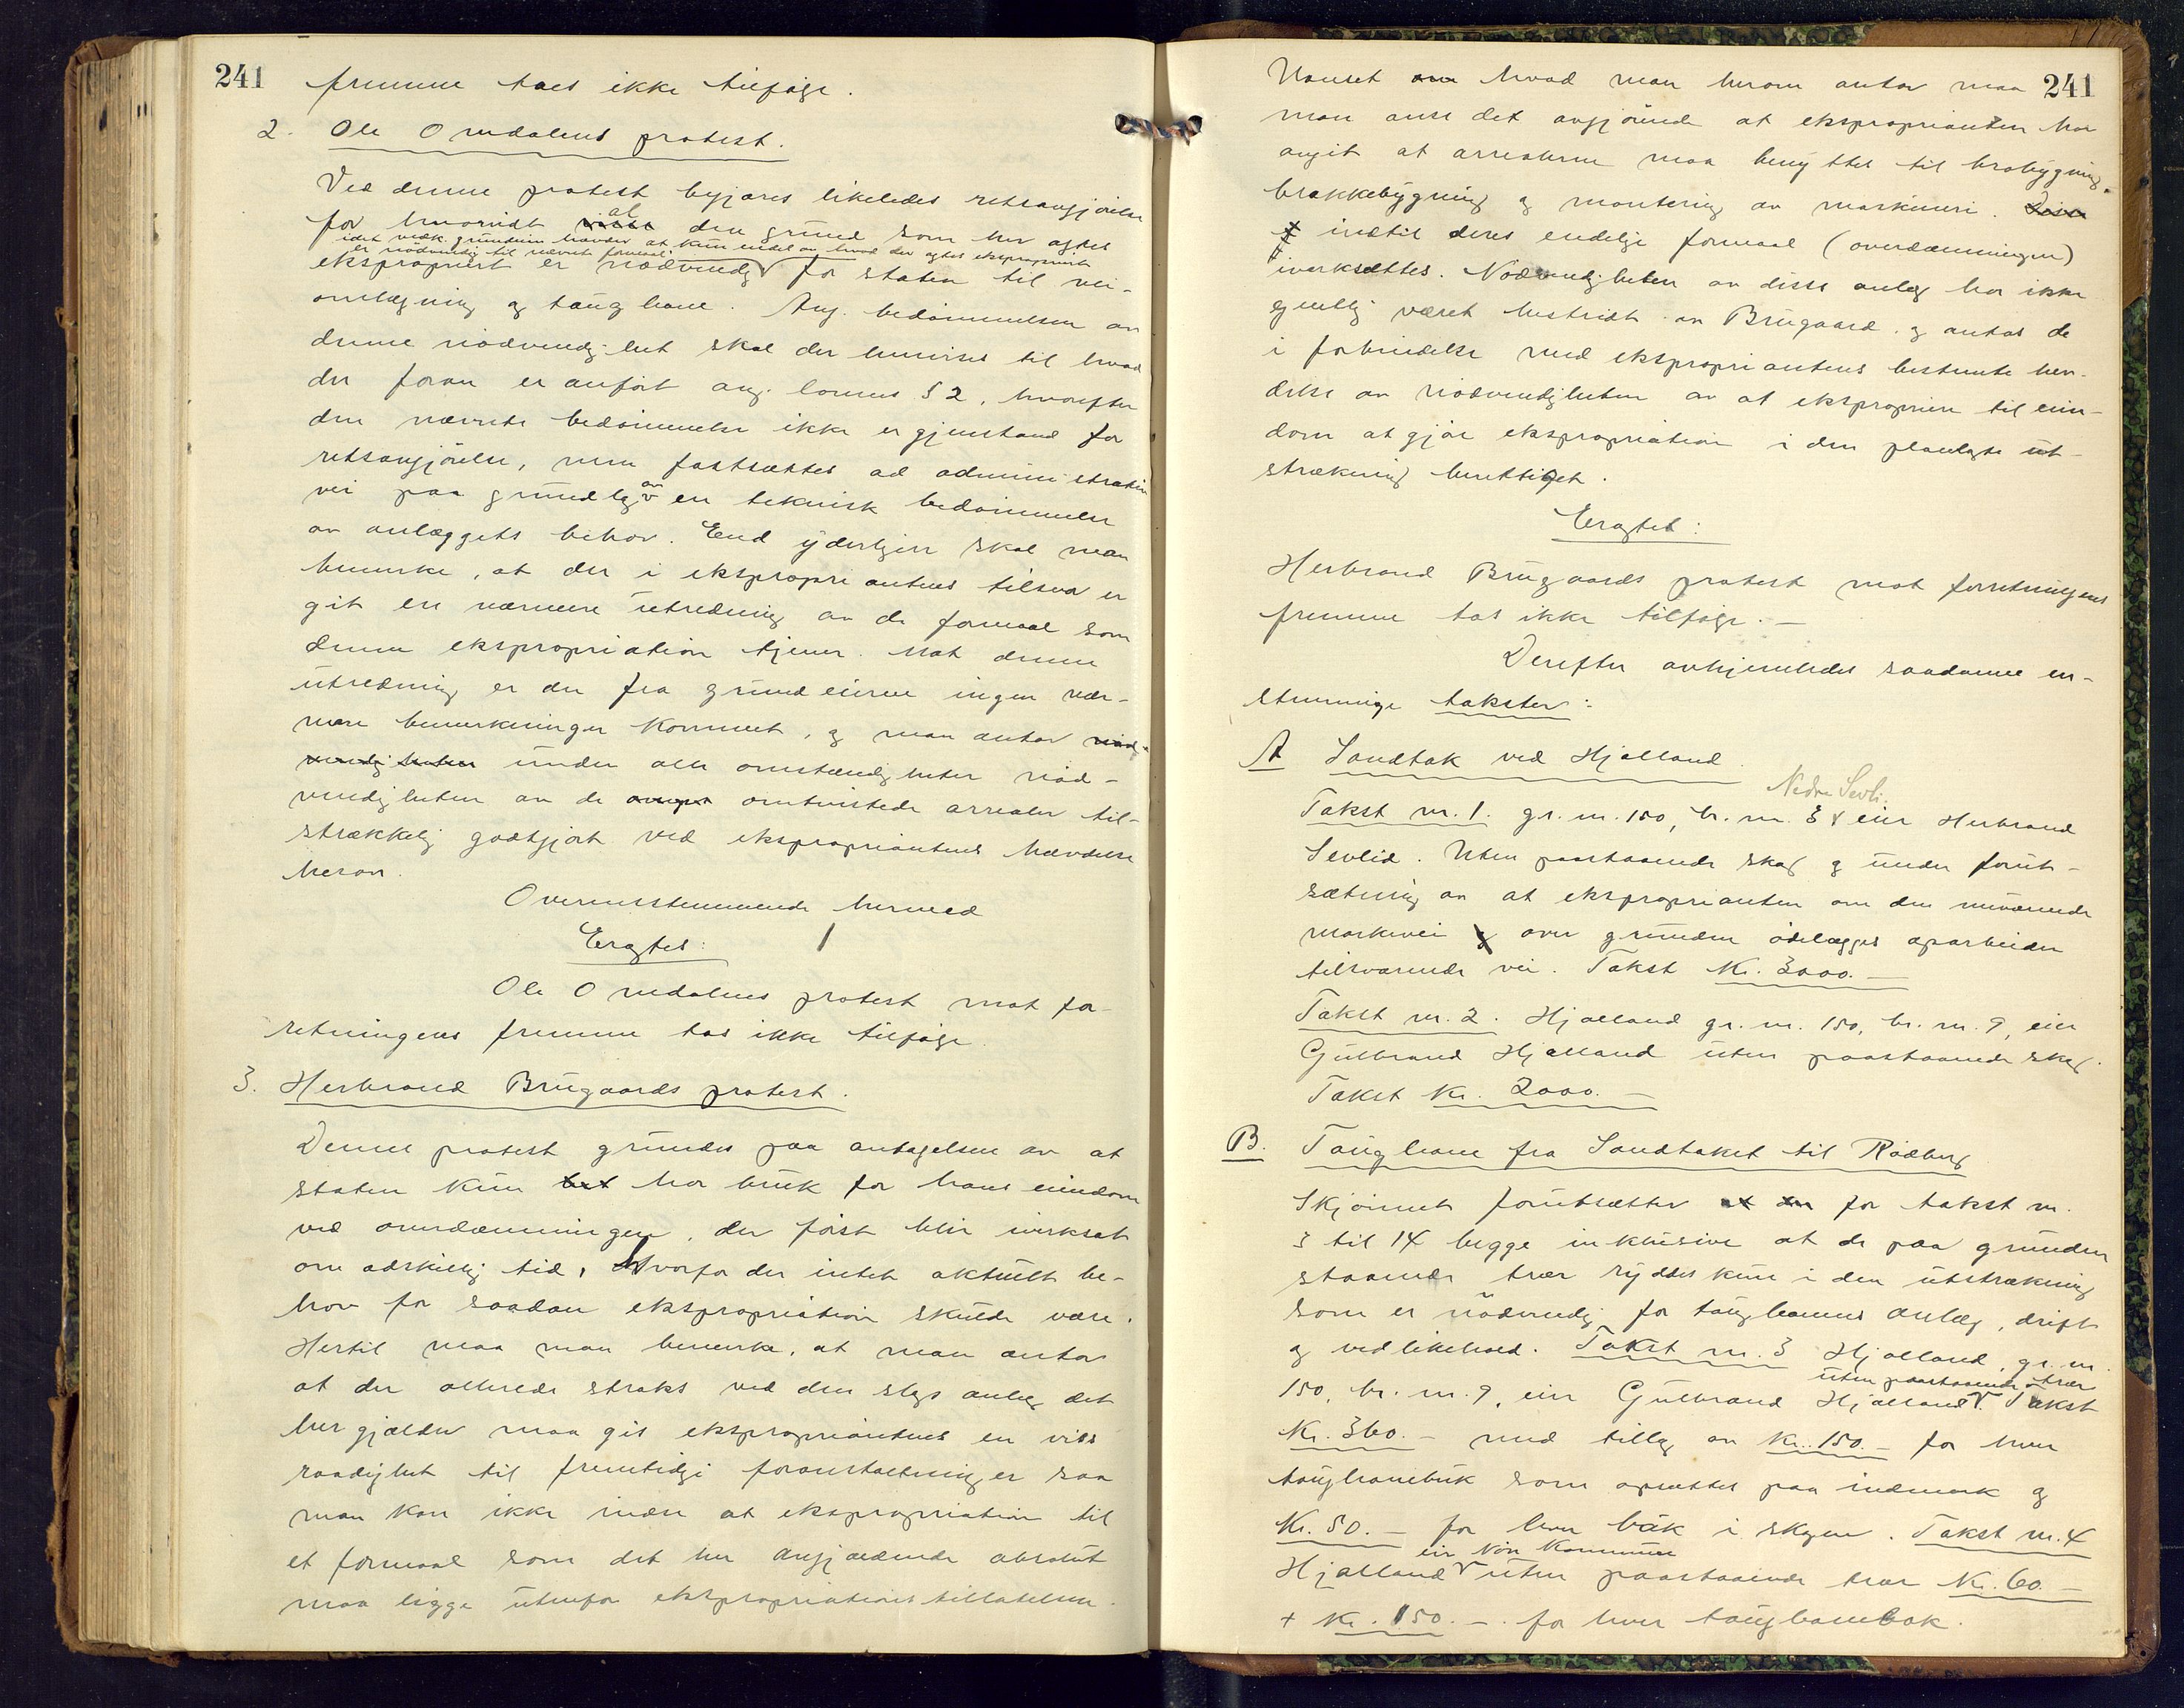 241
fremme toes ikke tilfølge.
2. Ole Omdalens protest.
Ved denne protest begjæres likeledes retsavgjørelse
for hvorvidt al den grund som her agtes
idet vedk. grundeier hævder at kun endel av hvad der agtes ekspropriert
er nødvendig til nævnte formaal
ekspropriert er nødvendig for staten til vei-
omlægning og taugbane. Ang. bedømmelsen av
denne nødvendighet skal der henvises til hvad
der foran er anført ang. lovens § 2, hvorefter
den nævnte bedømmelse ikke er gjenstand for
retsavgjørelse, men fastsættes ad administrativ
vei paa grundlag av en teknisk bedømmelse
av anlæggets behov. End yderligere skal man
bemerke, at der i ekspropriantens tilsvar er
git en nærmere utredning av de formaal som
denne ekspropriation tjener. Mot denne
utredning er der fra grundeierne ingen nær-
mere bemerkninger kommet, og man antar nød-
vendigheten under alle omstændigheter nød-
vendigheten av de omtvistede arrealer til-
strækkelig godtgjort ved ekspropriantens hævdelse
herav.
Overensstemmende hermed
Eragtes:
Ole Omdalens protest mot for-
retningens fremme tas ikke tilfølge.
3. Herbrand Brugaards protest.
Denne protest grundes paa antagelsen av at
staten kun har bruk for hans eiendom
ved overdæmningen, der først blir iverksat
om adskillig tid, hvorfor der intet aktuelt be-
hov for saadan ekspropriation skulde være.
Hertil maa man bemerke, at man antar
at der allerede straks ved den slags anlæg det
her gjælder maa gis ekspropriantens en viss
raadighet til fremtidige foranstaltninger saa
man kan ikke indse at ekspropriation til
et formaal som det her angjældende absolut
maa ligge utenfor ekspropriationstillatelsen.
241
Uanset hvad man herom antar maa
man anse det avgjørende at eksproprianten har
angit at arrealerne maa benyttes til brobygning,
brakkebygning og montering av maskineri.
indtil deres endelige formaal (overdæmningen)
iverksættes. Nødvendigheten av disse anlæg har ikke
egentlig været bestridt av Brugaard og antas de
i forbindelse med ekspropriantens bestemte hæv-
delse av nødvendigheten av at ekspropriere til eien-
dom at gjøre ekspropriation i den planlagte ut-
strækning berettiget.
Eragtet:
Herbrand Brugaards protest mot forretningens
fremme tas ikke tilfølge. —
Derefter avhjemledes saadanne en-
stemmige takster:
A Sandtak ved Hjalland.
Nedre Sevli.
Takst nr. 1. gr. nr. 150, br. nr. 3 eier Herbrand
Sevlid. Uten paastaaende skog og under forut-
sætning av at eksproprianten om den nuværende
markvei over grunden ødelægges oparbeider
tilsvarende vei. Takst Kr. 3000. —
Takst nr. 2. Hjalland gr. nr. 150, br. nr. 9, eier
Gulbrand Hjalland uten paastaaende skog.
Takst Kr. 2000. —
B. Taugbane fra Sandtaket til Rødberg
Skjønnet forutsætter for takst nr.
3 til 14 begge inklusive at de paa grunden
staaende trær ryddes kun i den utstrækning
som er nødvendig for taugbanens anlæg, drift
og vedlikehold. Takst nr. 3 Hjalland, gr. nr.
uten paastaaende trær
150, br. nr. 9, eier Gulbrand Hjalland. Takst
Kr. 360. — med tillæg av Kr. 150. — for hver
taugbanebuk som opsættes paa indmark og
Kr. 50. — for hver buk i skogen. Takst nr. 4
eier Nore Kommune
Hjalland uten paastaaende trær Kr. 60. —
+ Kr. 150. — for hver taugbanebuk.